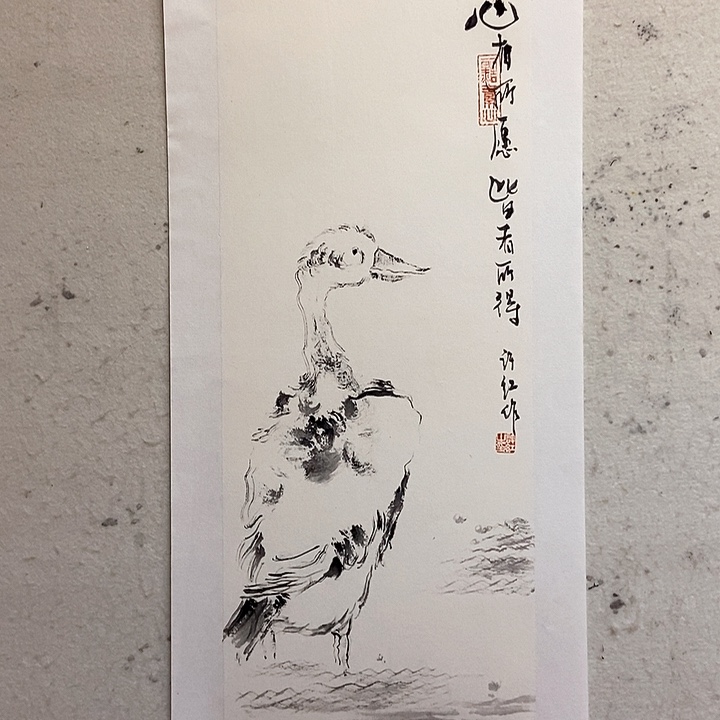 心有所愿 皆有所得 许红作